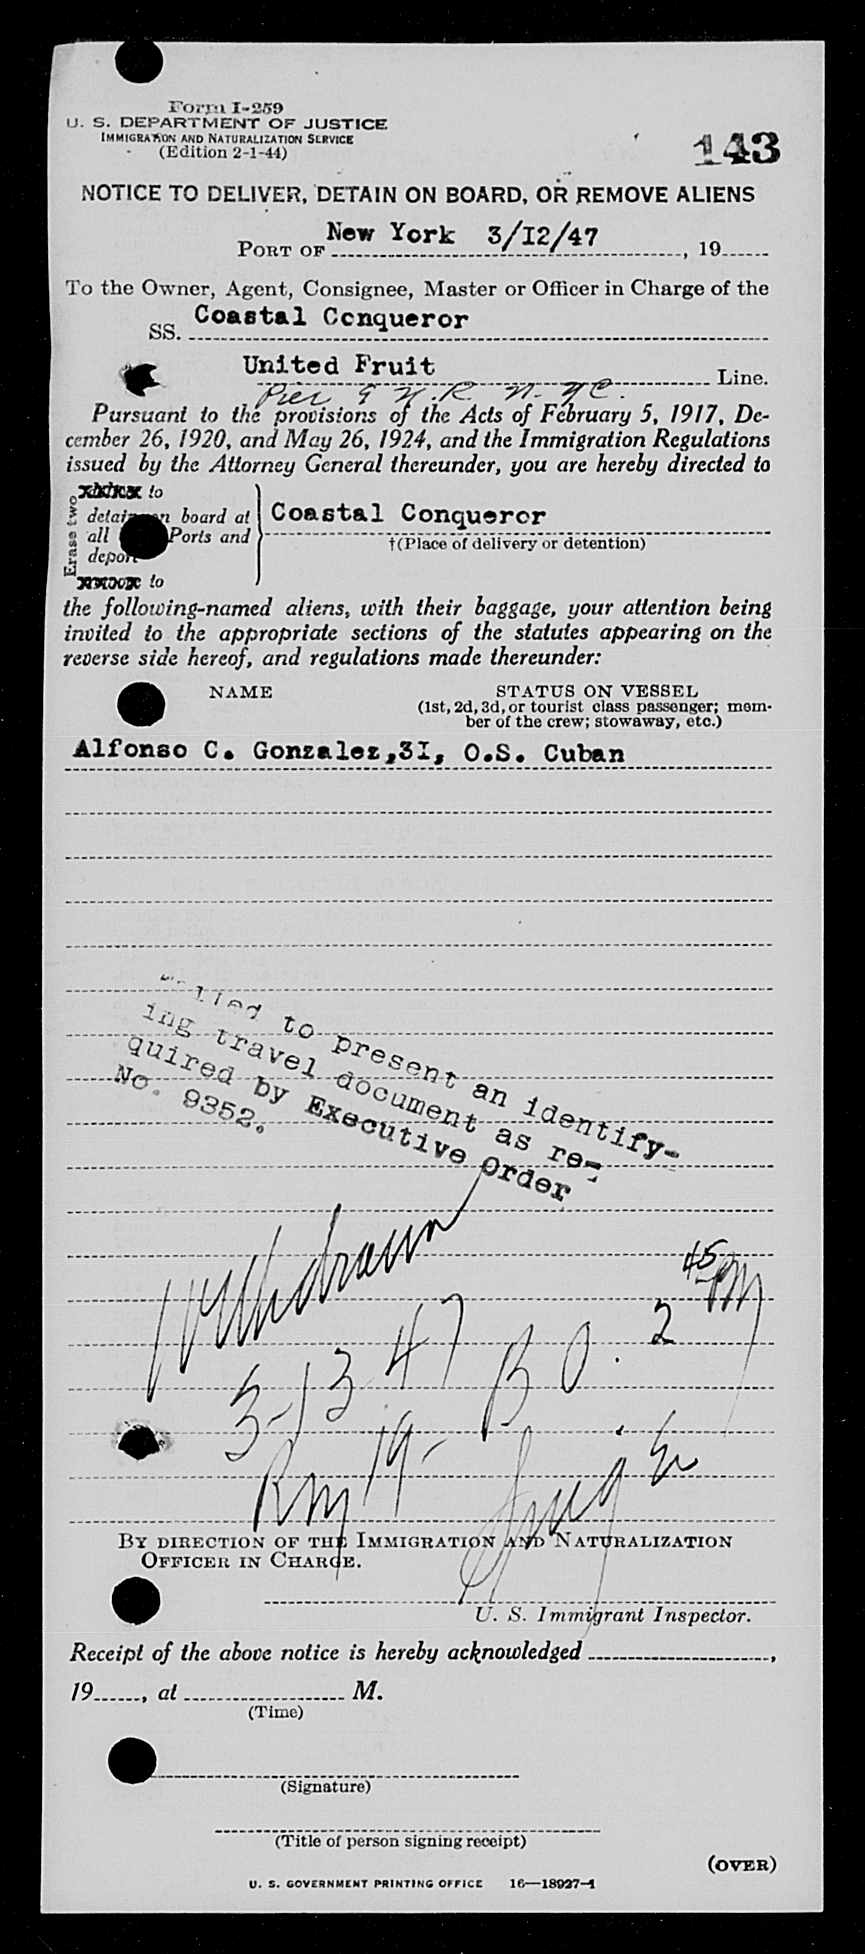 Form I-259
U. S. DEPARTMENT OF JUSTICE
IMMIGRATION AND NATURALIZATION SERVICE
(Edition 2-1-44)
143
NOTICE TO DELIVER, DETAIN ON BOARD, OR REMOVE ALIENS
PORT OF New York 3/12/47, 19
To the Owner, Agent, Consignee, Master or Officer in Charge of the
SS. Coastal Conqueror
United Fruit Line.
Pier 9 N. R. N. Y C.
Pursuant to the provisions of the Acts of February 5, 1917, De-
cember 26, 1920, and May 26, 1924, and the Immigration Regulations
issued by the Attorney General thereunder, you are hereby directed to
Erase two
to
detain on board at
all Ports and
deport
to
Coastal Conqueror
†(Place of delivery or detention)
the following-named aliens, with their baggage, your attention being
invited to the appropriate sections of the statutes appearing on the
reverse side hereof, and regulations made thereunder:
NAME STATUS ON VESSEL
(1st, 2d, 3d, or tourist class passenger; mem-
ber of the crew; stowaway, etc.)
Alfonso C. Gonzalez,31, O.S. Cuban
Failed to present an identify-
ing travel document as re-
quired by Executive Order
No. 9352.
Withdrawn
3-13 47 B O. 2 45 PM
Rm 19-
BY DIRECTION OF THE IMMIGRATION AND NATURALIZATION
OFFICER IN CHARGE.
U. S. Immigrant Inspector.
Receipt of the above notice is hereby acknowledged ,
19 , at M.
(Time)
(Signature)
(Title of person signing receipt)
(OVER)
U. S. GOVERNMENT PRINTING OFFICE 16—18927-1